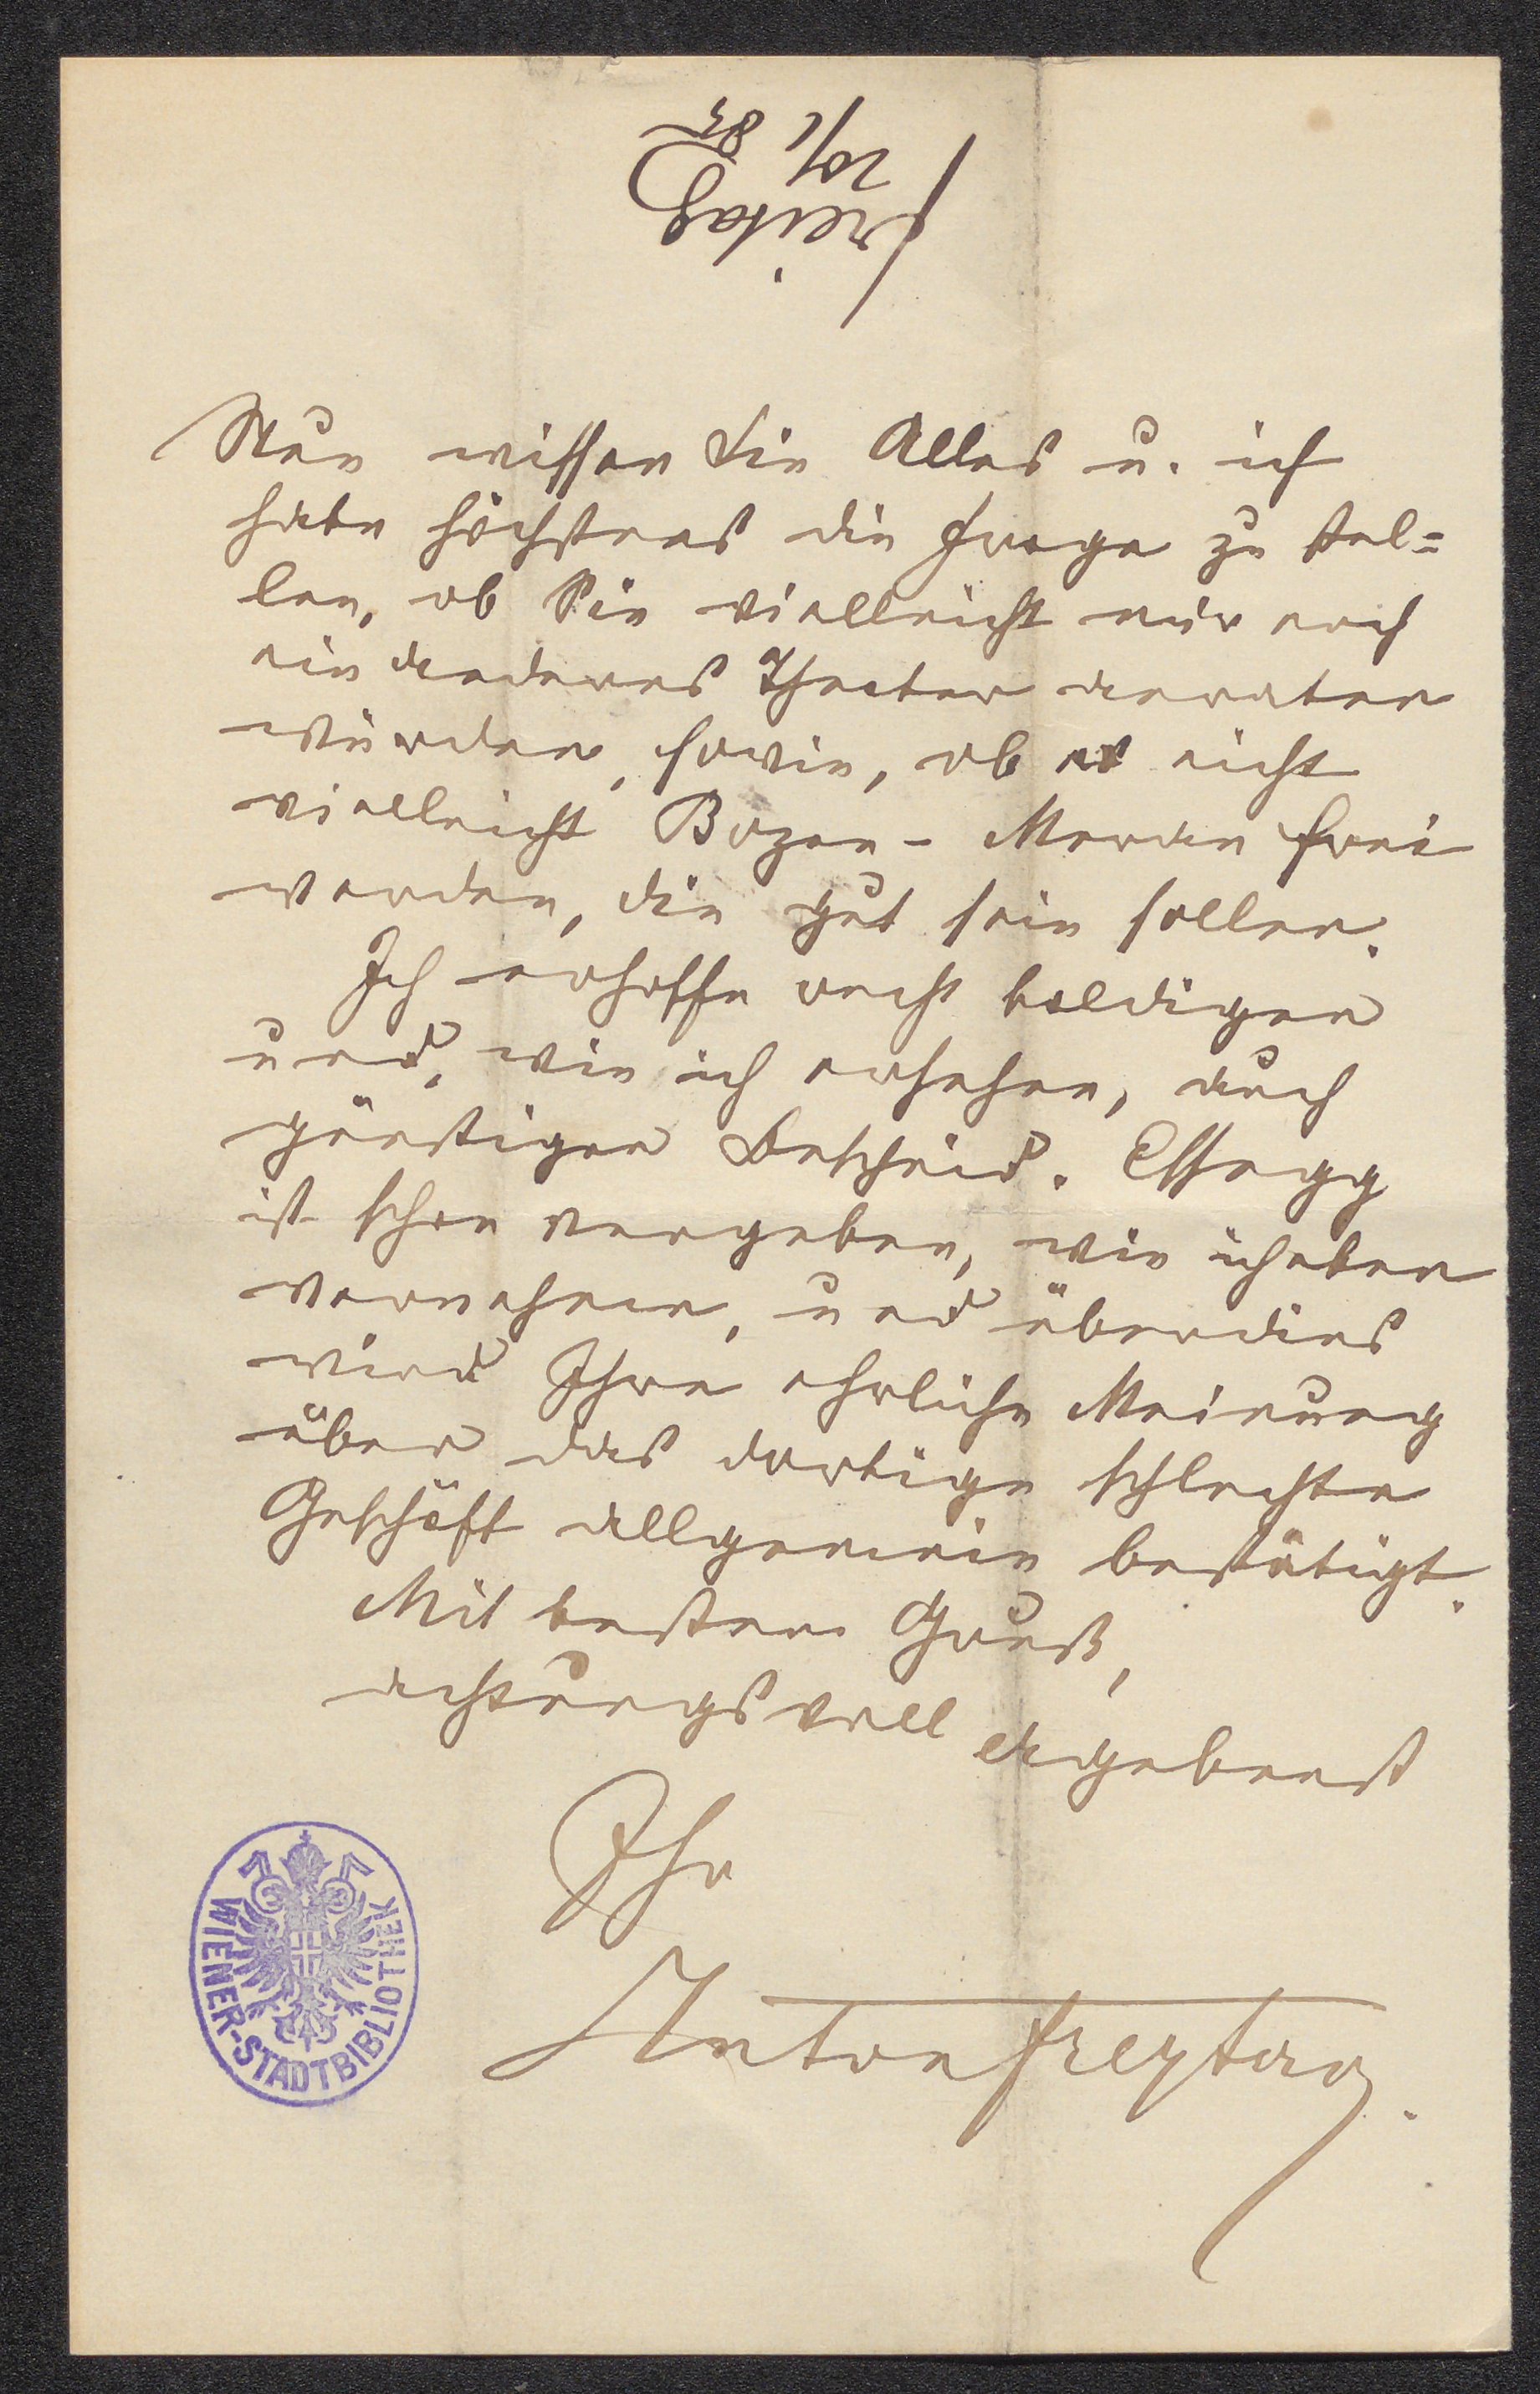 Freitag
20/1 83
Nun wissen Sie Alles u. ich
habe höchstens die Frage zu stel=
len, ob Sie vielleicht mir noch
ein anderes Theater anraten
würden, sowie, ob nicht
vielleicht Bozen - Meran frei
werden, die gut sein sollen.
Ich erhoffe recht baldigen
und, wie ich ersehne, auch
günstigen Bescheid. Essegg
ist schon vergeben, wie ich eben
vernehme, und überdies
wird Ihre ehrliche Meinung
über das dortige schlechte
Geschäft allgemein bestätigt.
Mit bestem Gruß,
achtungsvoll ergebenst
Ihr
Anton Freytag.
WIENER-STADTBIBLIOTHEK